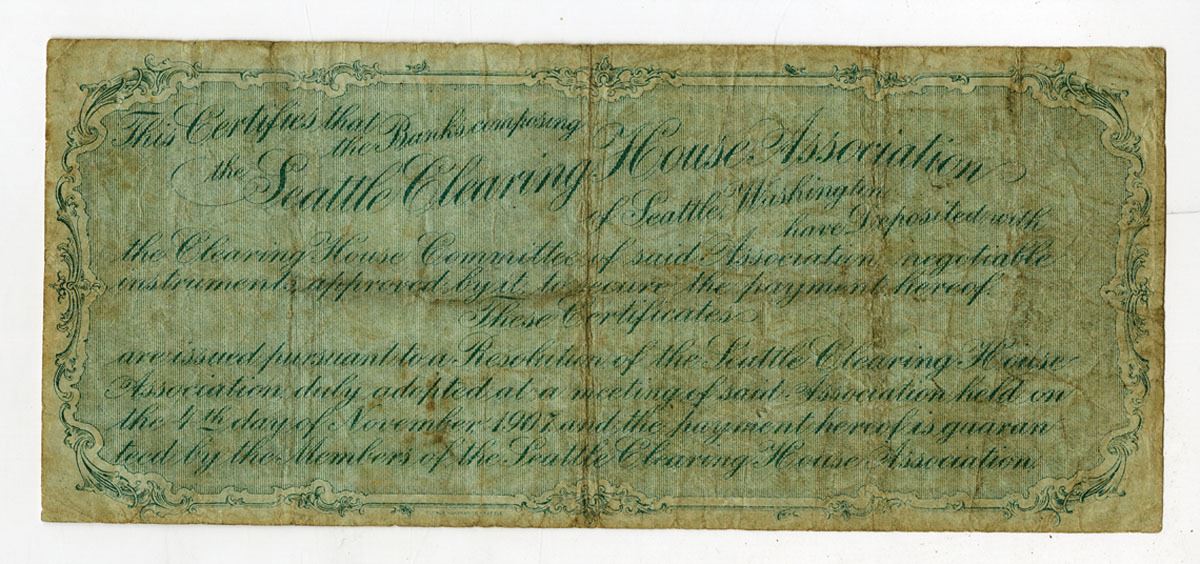 This Certifies that
the Banks composing
the Seattle Clearing House Association
of Seattle, Washington
have Deposited with
the Clearing House Committee of said Association negotiable
instruments approved by it to secure the payment hereof.
These Certificates
are issued pursuant to a Resolution of the Seattle Clearing House
Association duly adopted at a meeting of said Association held on
the 4th day of November 1907 and the payment hereof is guaran
teed by the Members of the Seattle Clearing House Association.